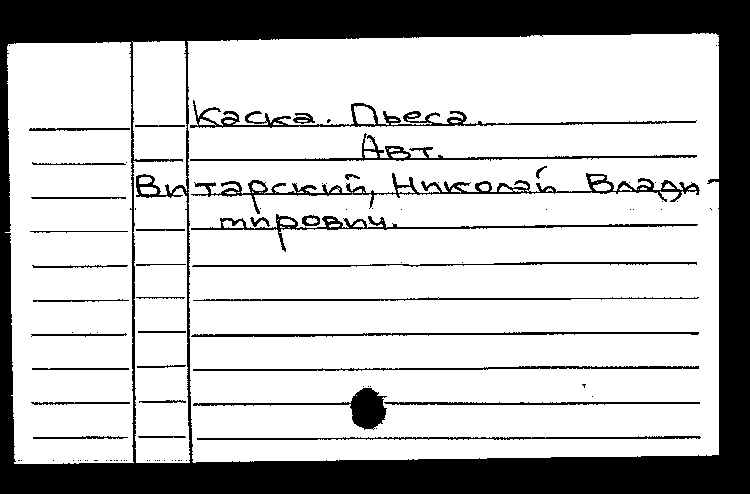 Каска. Пьеса.
Авт.
Витарский, Николай Влади-
мирович.